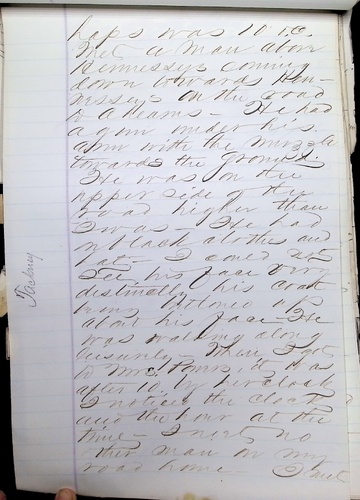 haps was 10 to.
Met a man above
Hennesseys coming
down towards Hen-
nesseys on the road
to Adams - He had
a gun under his
arm with the muzzle
towards the ground.
He was on the
upper side of the
road higher than
I was - He had
on black clothes and
hat - I could not
see his face very
distinctly his coat
was buttoned up
about his face - He
was walking along
leisurely - When I got
to Mrs. it was
after 10 by her clock
I noticed the clock
and the hour at the
time - I met no
other man on my
road home - I met
Factory